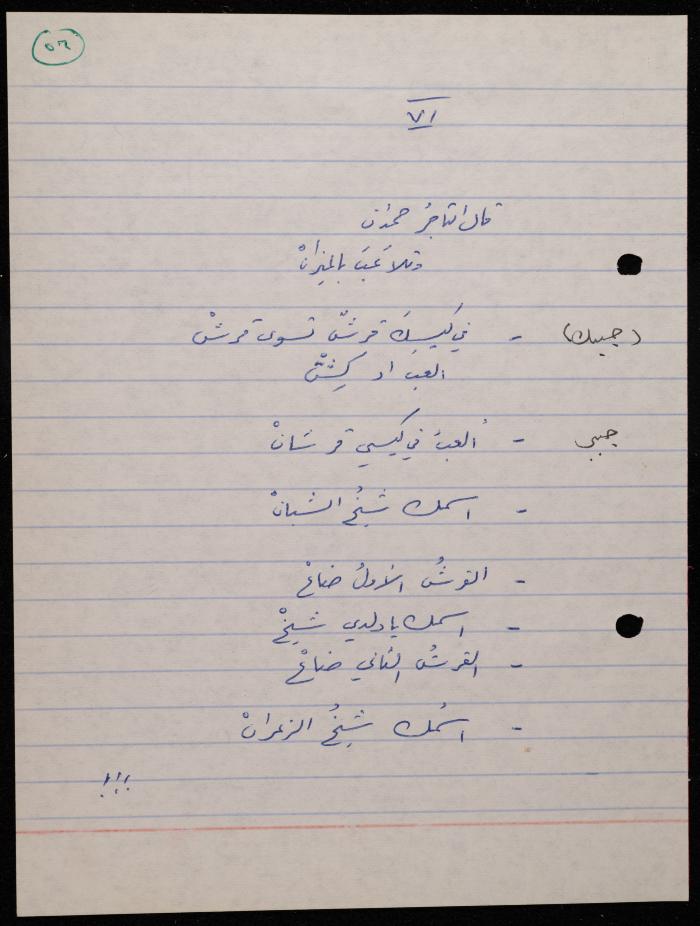 ٥٦
VI
قال التاجرُ حمدان
وتلاعَبَ بالميزانْ
(جيبك) - في كيسِكَ قرشٌ تسوى قرشْ
العب او كِشّْ
جيبي - ألعبُ في كيسي قرشانْ
- اسمك شيخُ الشبانْ
- القرشُ الأولُ ضاعْ
- اسمك يا ولدي شيخْ
- القرشُ الثاني ضاعْ
- اسمُك شيخُ الزعرانْ
!!!